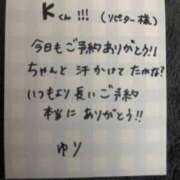 Kくん!!! (リピーター様)
今日もご予約ありがとう!!
ちゃんと汗かけてたかな?
いつもより長いご予約
本当にありがとう!!
ゆり